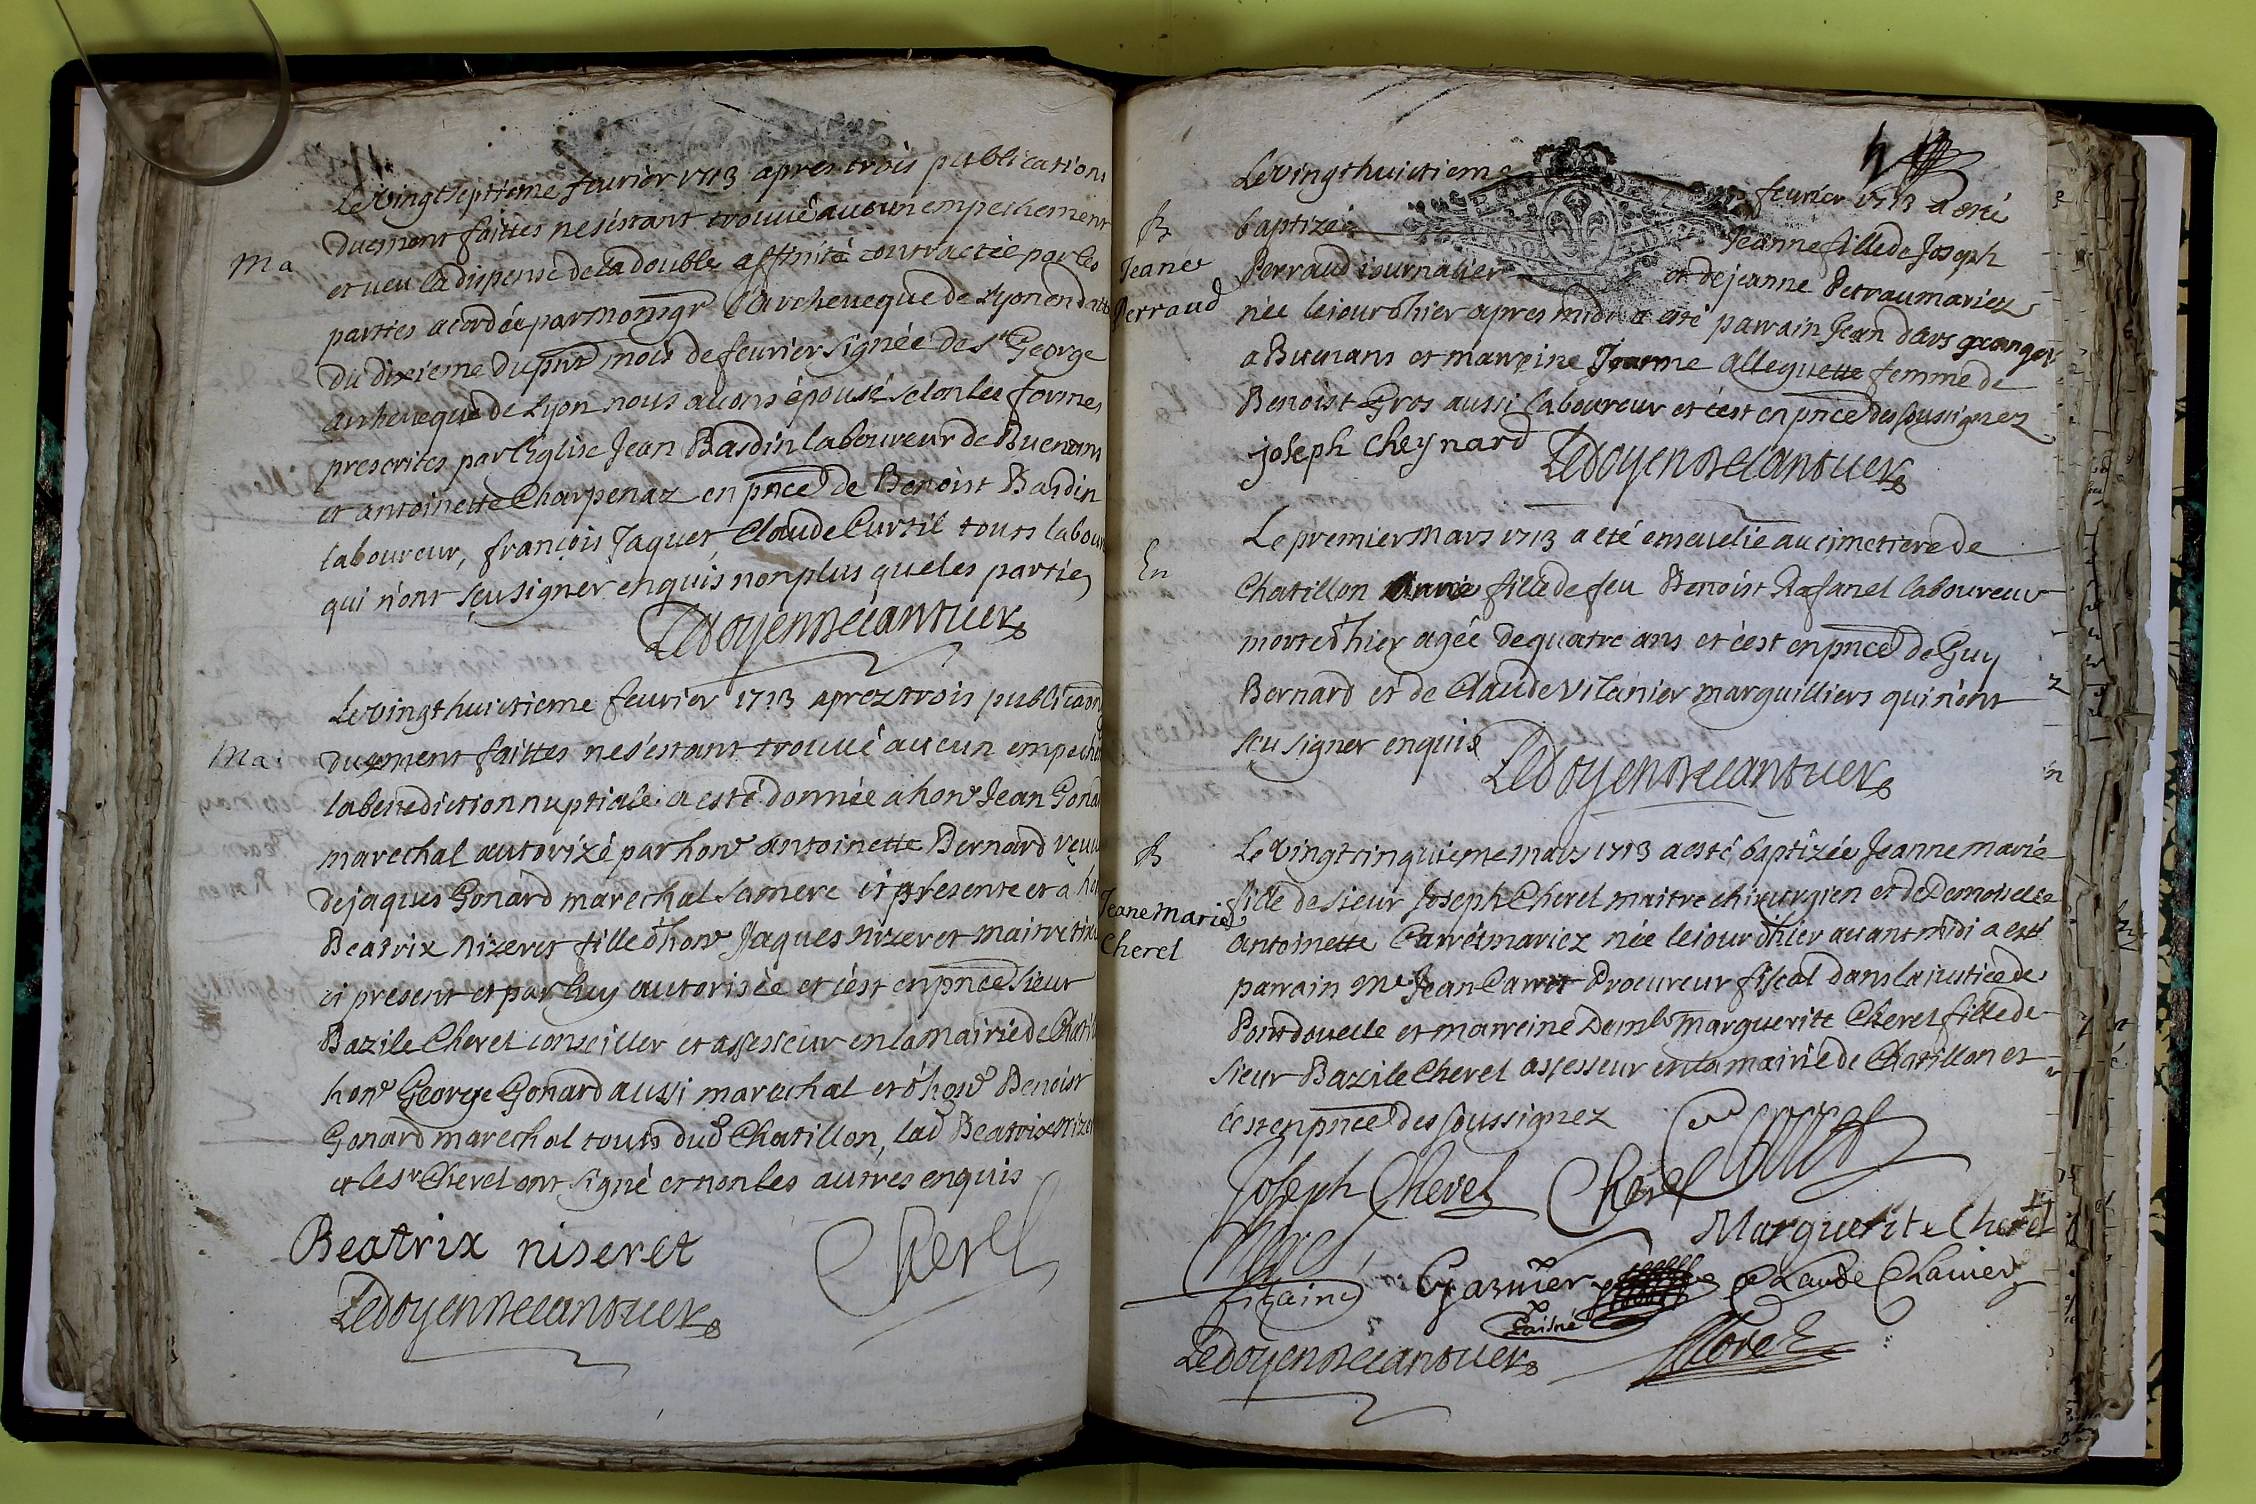 Le vingt septieme fevrier 1713 apres trois publications
duement faittes ne s'estant trouvé aucun empeschement
Ma
et veu la dispense de la double affinité contractée par les
parties acordée par monsgr l'Archeveque de Lyon en datte
du dixieme du pnt mois de fevrier signée de St George
archeveque de Lyon nous avons épousé selon les formes
prescrites par l'église Jean Bardin laboureur de Buenans
et antoinette Charpenaz en pnce de Benoist Bardin
laboureur, françois Jaquet Claude Curtil touts labour
qui n'ont sçu signer enquis non plus que les parties
Ledoyen
Le vingt huictieme fevrier 1713 aprez trois publicaons
Ma
duement faittes ne s'estant trouvé aucun empeche
la benediction nuptiale a esté donnée a hon. Jean Gona
marechal autorizé par hon. antoinette Bernard veuve
de jaques Gonard marechal sa mere ici presente et a ho
Beatrix Nizeret fille d'hon. Jaques Nizeret maitre
ci present et par luy autorisée et c'est en pnce sieur
Bazile Cherel conseiller et assesseur en la mairie de Chatil
hon. George Gonard aussi marechal et d'hon. Benoist
Gonard marechal touts dud Chatillon, lad Beatrix Nizer
et le sr Cherel ont signé et non les autres enquis
Beatrix niseret
Cherel
Ledoyen
Le vingt huictieme fevrier 1713 a esté
B
baptizée Jeanne fille de Joseph
Jeane
Perraud journalier et de jeanne Petrau mariez
Perraud
née le jour d'hier apres midi a été parrain Jean granger
a Buenans et marreine Jeanne Alleguette femme de
Benoist Gros aussi laboureur et c'est en pnce des soussignez
joseph Cheynard
Ledoyen
Le premier Mars 1713 a été ensevelie au cimetiere de
En
Chatillon Anne fille de feu Benoist Rafanel laboureur
morte d'hier agée de quatre ans et c'est en pnce de Guy
Bernard et de Claude Vilanier marguilliers qui n'ont
sçu signer enquis
Ledoyen
B
Le vingt cinquieme mars 1713 a esté baptizée Jeanne marie
Jeane Marie
fille de sieur Joseph Cherel maitre chirurgien et de Demoiselle
Cherel
Antoinette Carret mariez née le jour d'hier avant midi a esté
parrain Me Jean Carret Procureur fiscal dans la justice de
et marreine Demle Marguerite Cherel fille de
sieur Bazile Cherel assesseur en la mairie de Chatillon et
c'est en pnce des soussignez
Joseph Cherel Cherel
Marguerite Cherel
Cherel
Garnier Claude
Laisné
Ledoyen